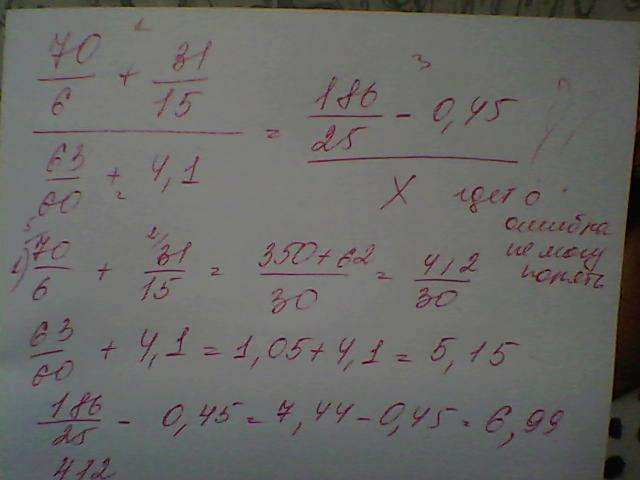 70/6 + 31/15 / 63/60 + 4,1 = 186/25 - 0,45 / X
1
2
3
где то
ошибка
не могу
понять
1) 70/6 + 31/15 = 350+62/30 = 412/30
63/60 + 4,1 = 1,05+4,1 = 5,15
186/25 - 0,45 = 7,44-0,45 = 6,99
412